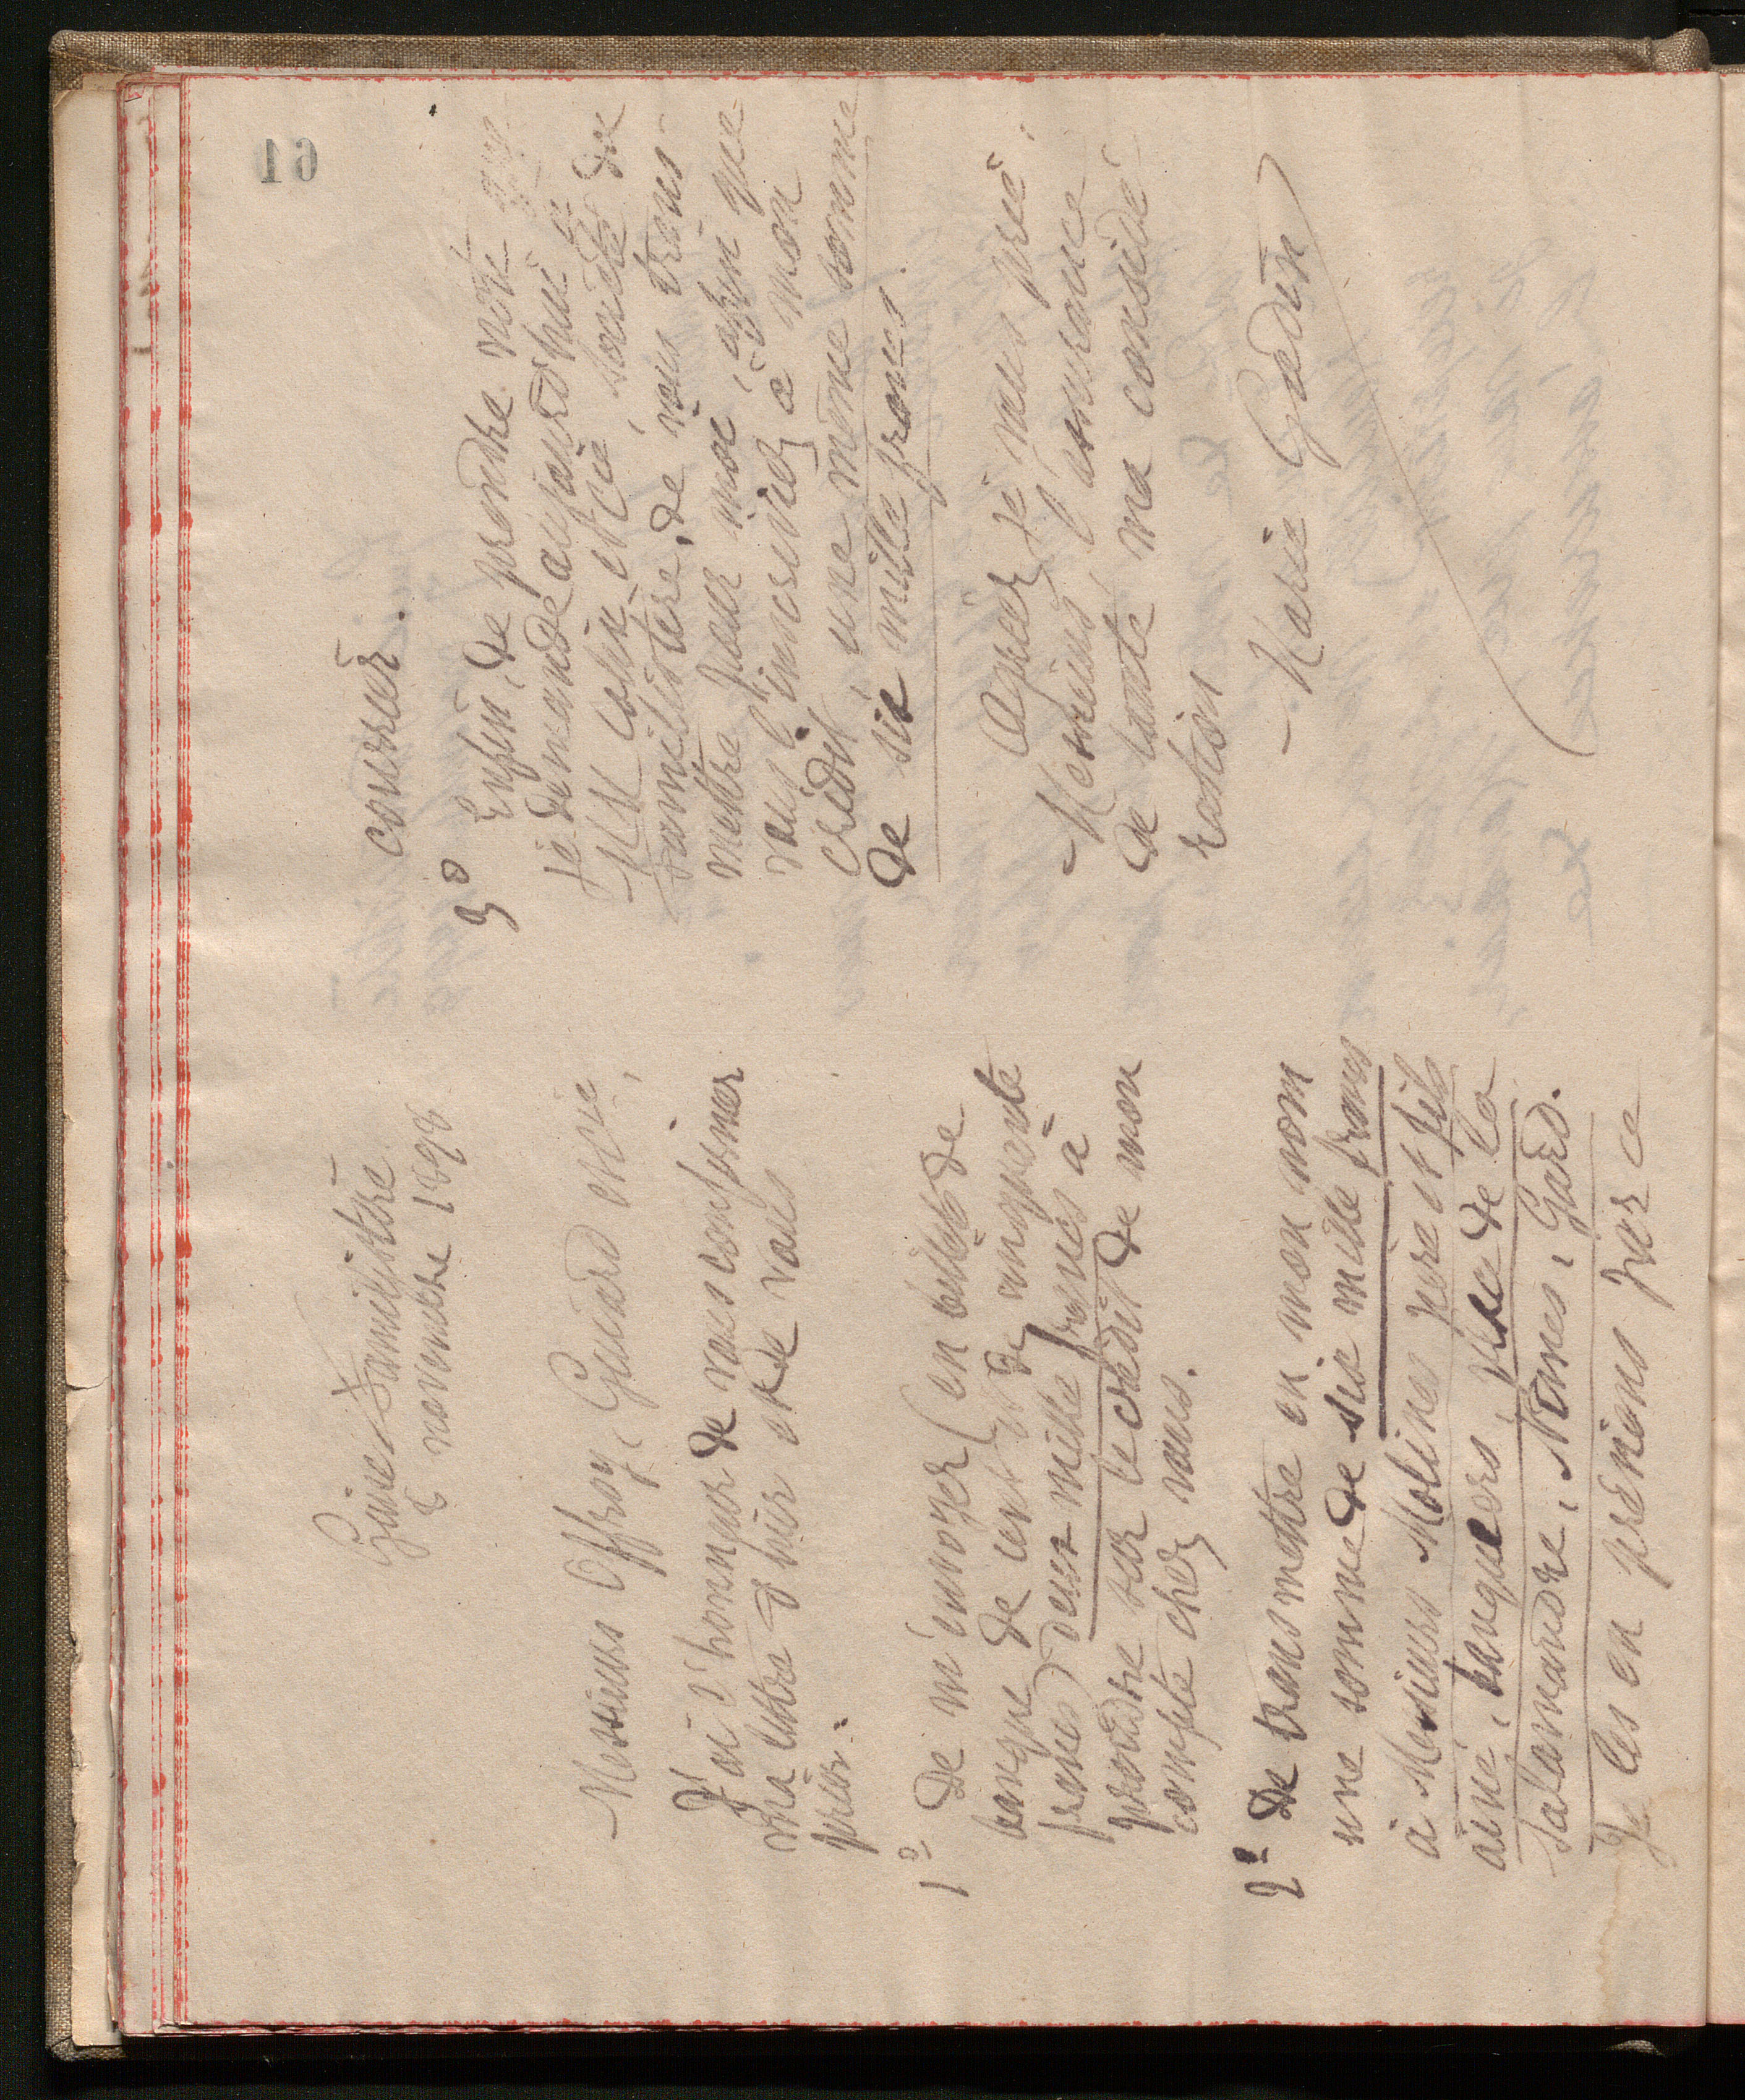 Guise Familistère
8 novembre 1898
Messieurs Offroy, Guiard et Cie,
J'ai l'honneur de vous confirmer
ma lettre d'hier et de vous
prier:
1º De m'envoyer (en billets de
banque de cent et de cinquante
francs) deux mille francs à
prendre sur le crédit de mon
compte chez vous.
2º De transmettre en mon nom
une somme de six mille francs
à Messieurs Molines père et fils
aîné, banquiers, place de la
Salamandre, Nîmes, Gard.
Je les en préviens par ce
courrier.
3º Enfin, de prendre note que
je demande aujourd'hui à
MM Colin et Cie, Société du
Familistère, de vous trans-
mettre pour moi, afin que
vous l'inscriviez à mon
crédit, une même somme
de six mille francs.
Agréez, je vous prie,
Messieurs, l'assurance
de toute ma considé
ration
Marie Godin
61